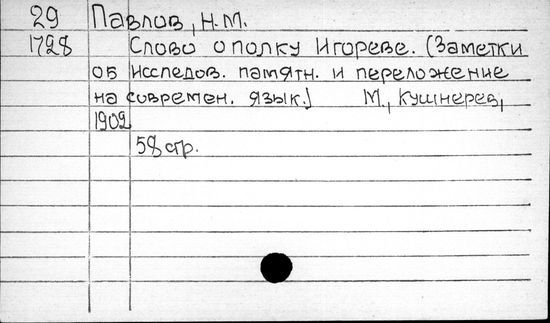 29 Павлов, Н.М.
1728 Слово о полку Игореве. (Заметки
об исследов. памятн. и переложение
на современ. язык.) М., Кушнерев,
1902
58 стр.